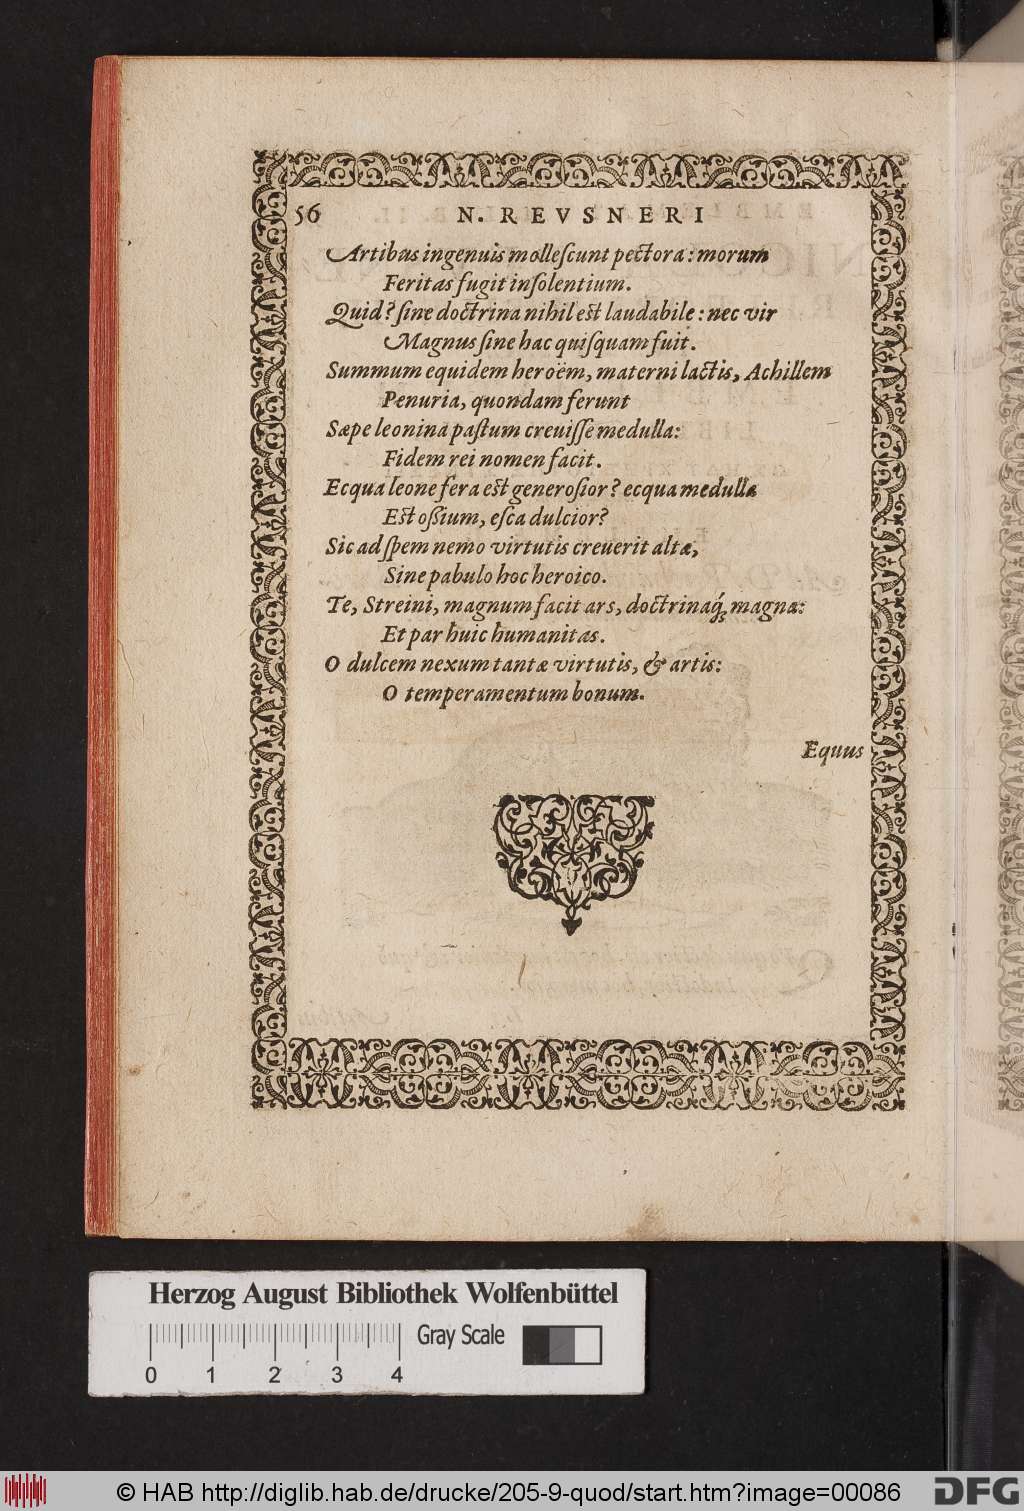 56 N. REVSNERI
Artibus ingenuis molleſcunt pectora: morum
Feritas fugit inſolentium.
Quid? ſine doctrina nihil est laudabile: nec vir
Magnus ſine hac quiſquam fuit.
Summum equidem heroëm, materni lactis, Achillem
Penuria, quondam ferunt
Sæpe leonina paſtum creuiſſe medulla:
Fidem rei nomen facit.
Ecqua leone fera est generoſior? ecqua medullæ
Est oßium, eſca dulcior?
Sic ad ſpem nemo virtutis creuerit altæ,
Sine pabulo hoc heroico.
Te, Streini, magnum facit ars, doctrinaq́; magna:
Et par huic humanitas.
O dulcem nexum tantæ virtutis, & artis:
O temperamentum bonum.
Equus
Herzog August Bibliothek Wolfenbüttel
Gray Scale
0 1 2 3 4
© HAB http://diglib.hab.de/drucke/205-9-quod/start.htm?image=00086
DFG